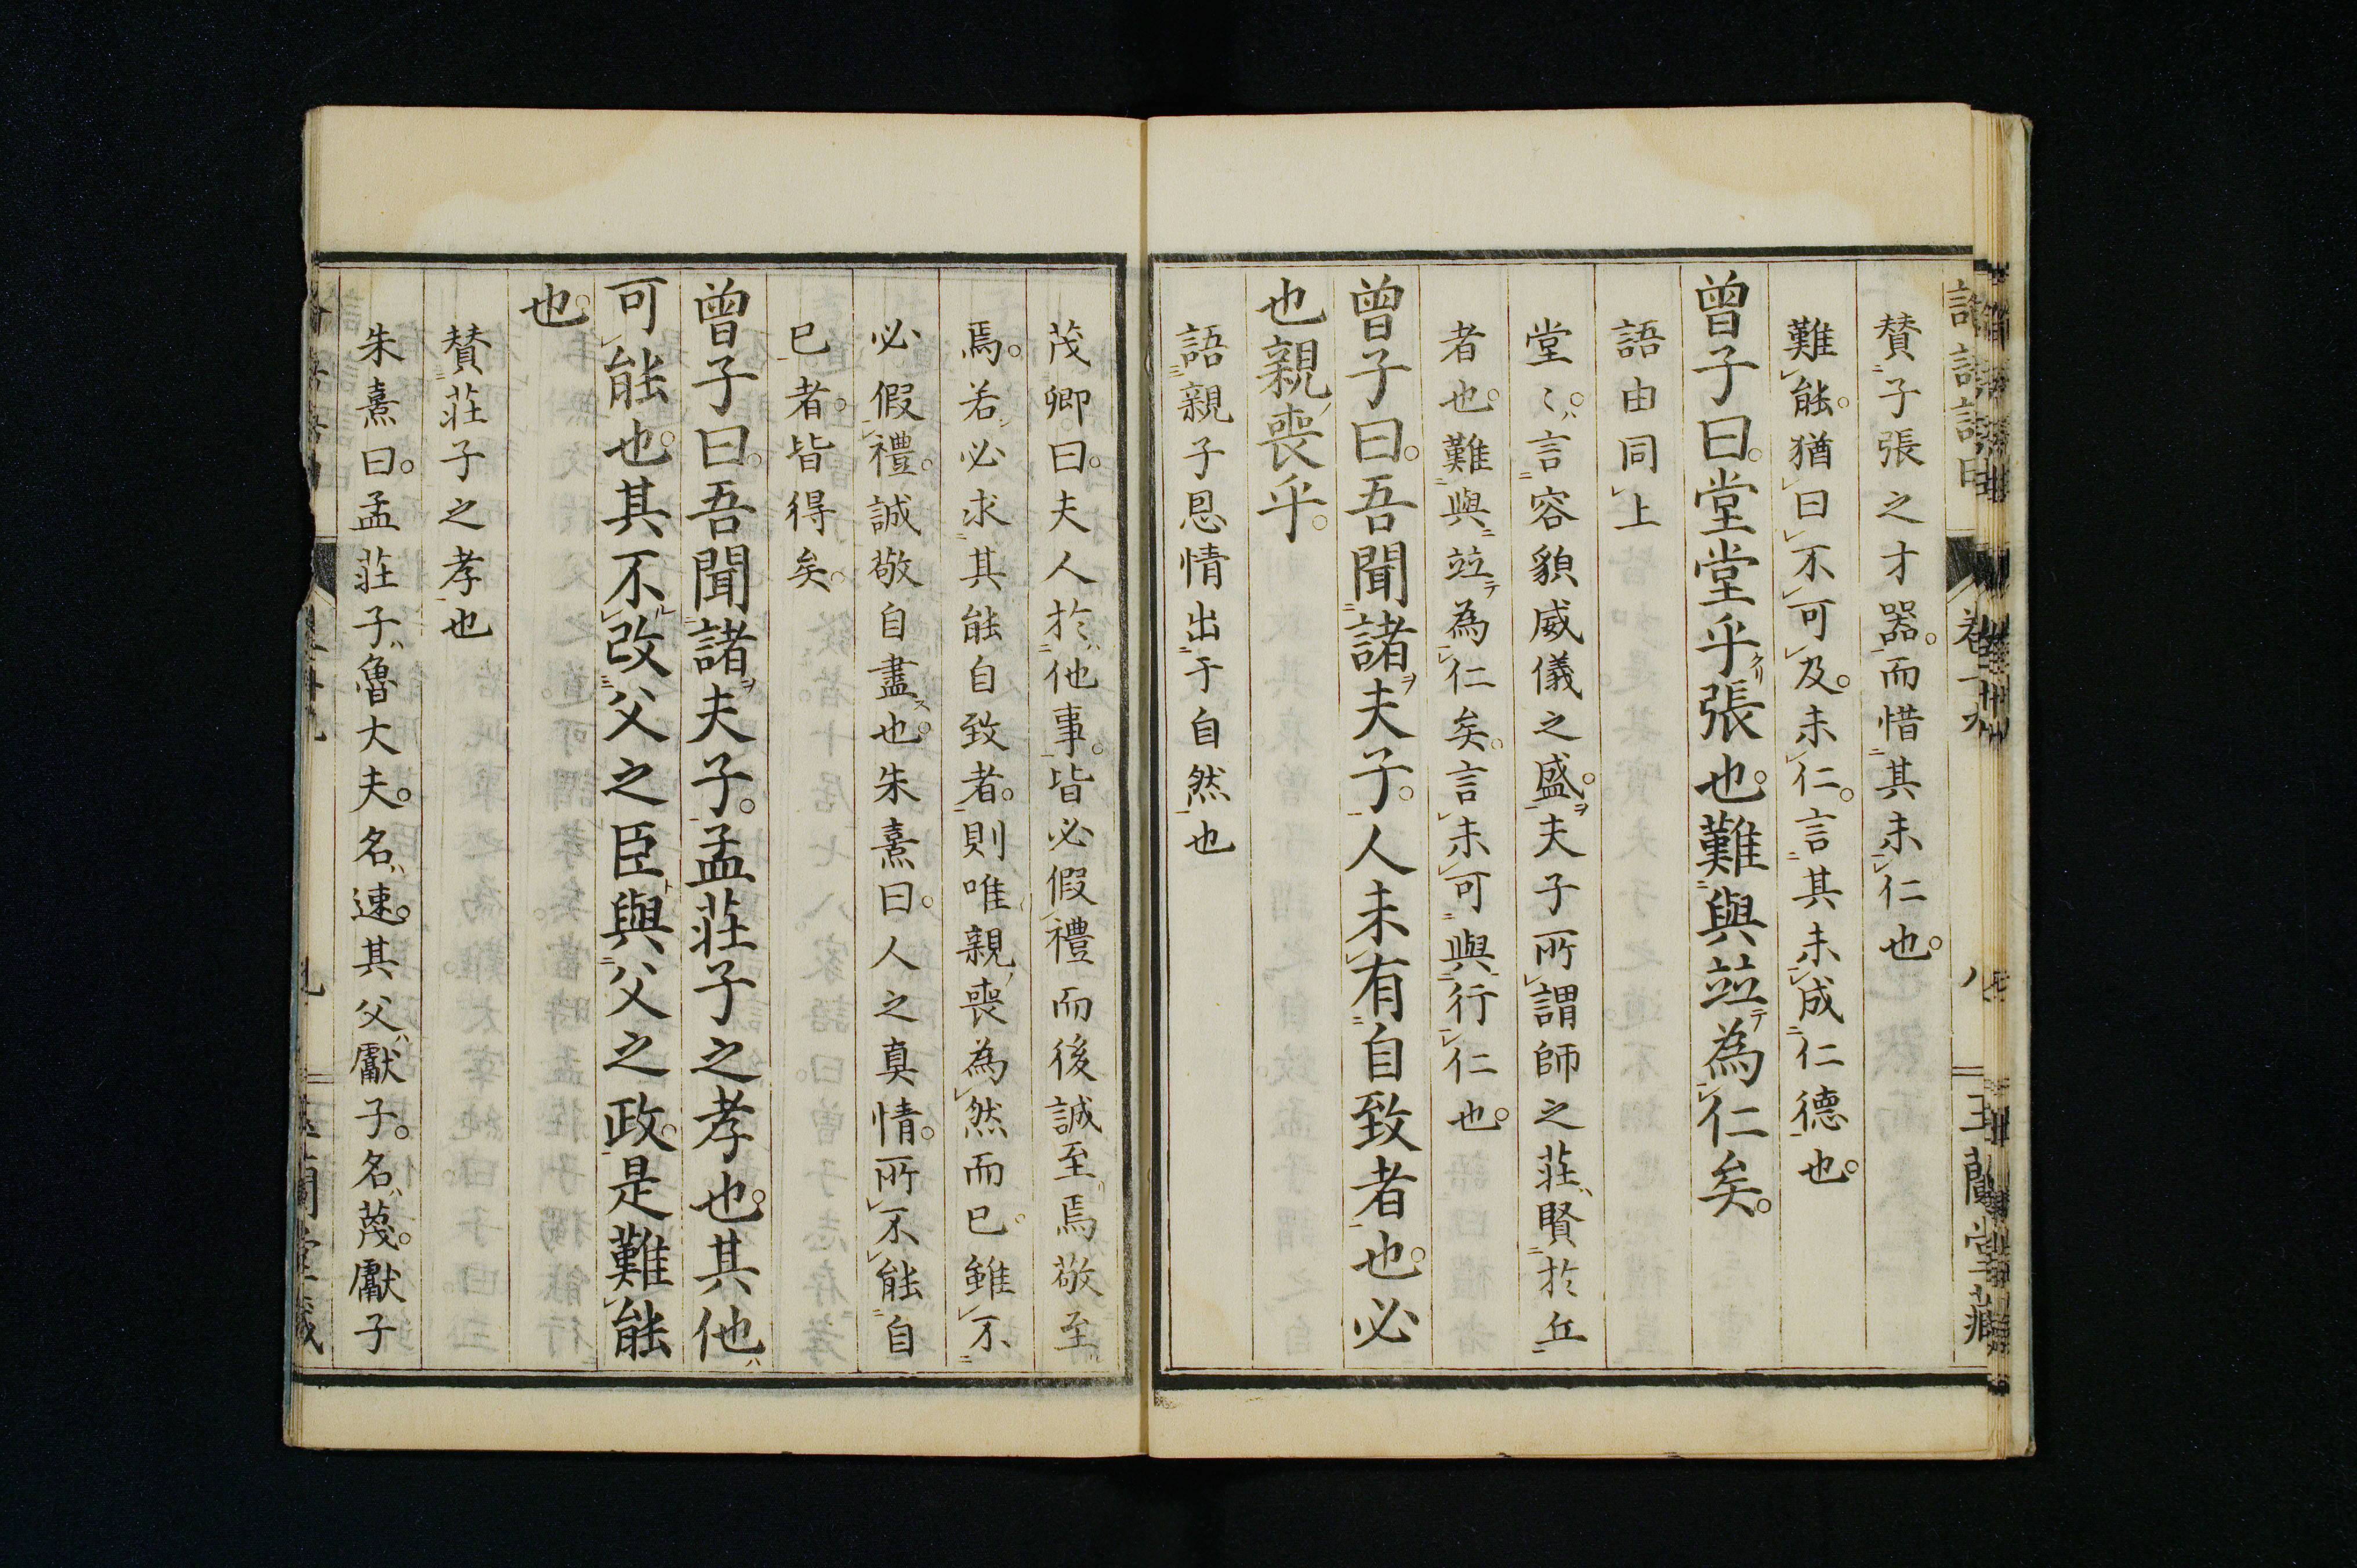 賛子張之才器。而惜其未仁也。
難能。猶曰不可及。未仁。言其未成仁德也。
曾子曰。堂堂乎張也。難與竝為仁矣。
語由同上
堂〻。言容貌威儀之盛。夫子所謂師之莊賢於丘
者也。難與竝為仁矣。言未可與行仁也。
曾子曰。吾聞諸夫子。人未有自致者也。必
也親喪乎。
語親子恩情出于自然也
茂卿曰。夫人於他事。皆必假禮而後誠至焉敬至
焉。若必求其能自致者。則唯親喪為然而已。雖不
必假禮。誠敬自盡也。朱熹曰。人之真情。所不能自
已者。皆得矣。
曾子曰。吾聞諸夫子。孟莊子之孝也。其他
可能也。其不改父之臣與父之政。是難能
也。
賛莊子之孝也
朱熹曰。孟莊子魯大夫。名速。其父獻子。名蔑。獻子